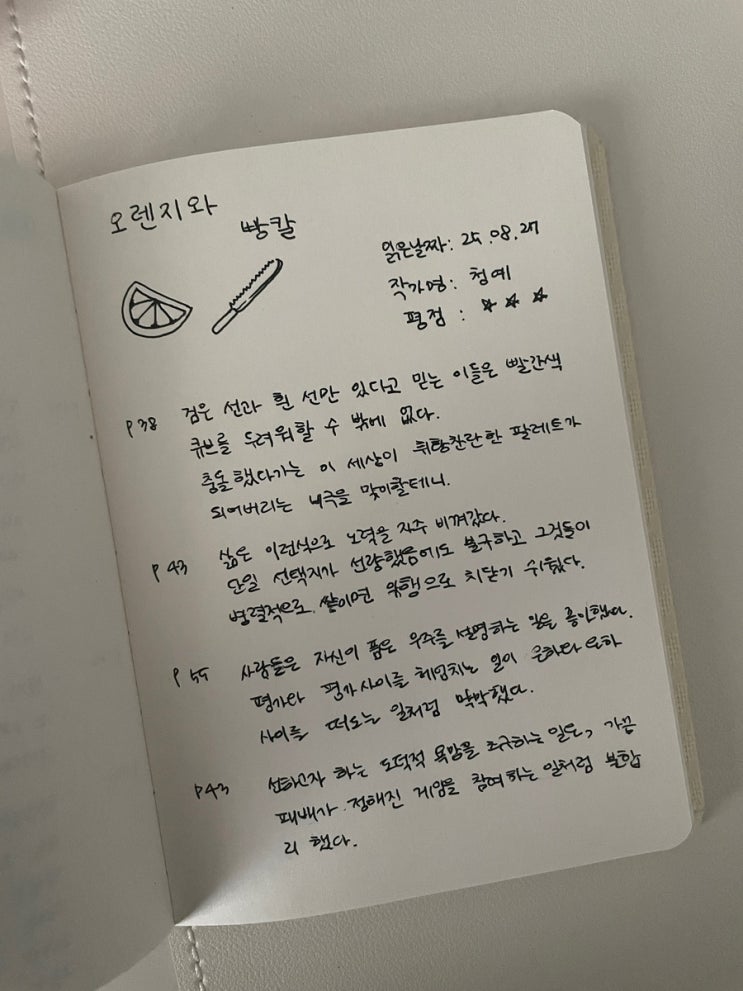 오렌지와
빵칼
읽은날짜: 25.08.27
작가명: 청예
평점: ★ ★ ★
P38 검은 선과 흰 선만 있다고 믿는 이들은 빨간색
큐브를 두려워할 수 밖에 없다.
충돌했다가는 이 세상이 휘황찬란한 팔레트가
되어버리는 비극을 맞이할테니.
P 43 삶은 이런식으로 노력을 자주 비껴갔다.
단일 선택지가 선량했음에도 불구하고 그것들이
병렬적으로 쌓이면 악행으로 치닫기 쉬웠다.
P 55 사람들은 자신이 품은 우주를 설명하는 일을 좋아했다.
평가와 평가사이를 헤엄치는 일이 은하와 은하
사이를 떠도는 일처럼 막막했다.
P43 선하고자 하는 도덕적 욕망을 추구하는 일도, 가끔
패배가 정해진 게임을 참여하는 일처럼 불합
리 했다.